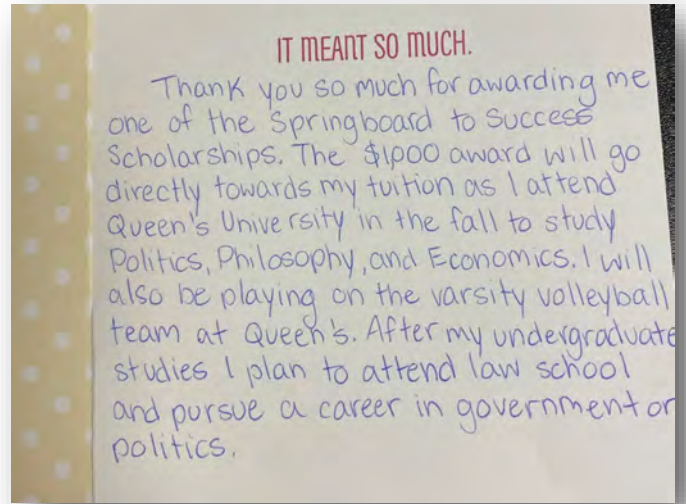 IT MEANT SO MUCH.
Thank you so much for awarding me
one of the Springboard to Success
Scholarships. The $1,000 award will go
directly towards my tuition as I attend
Queen's University in the fall to study
Politics, Philosophy, and Economics. I will
also be playing on the varsity volleyball
team at Queen's. After my undergraduate
studies I plan to attend law school
and pursue a career in government or
politics.